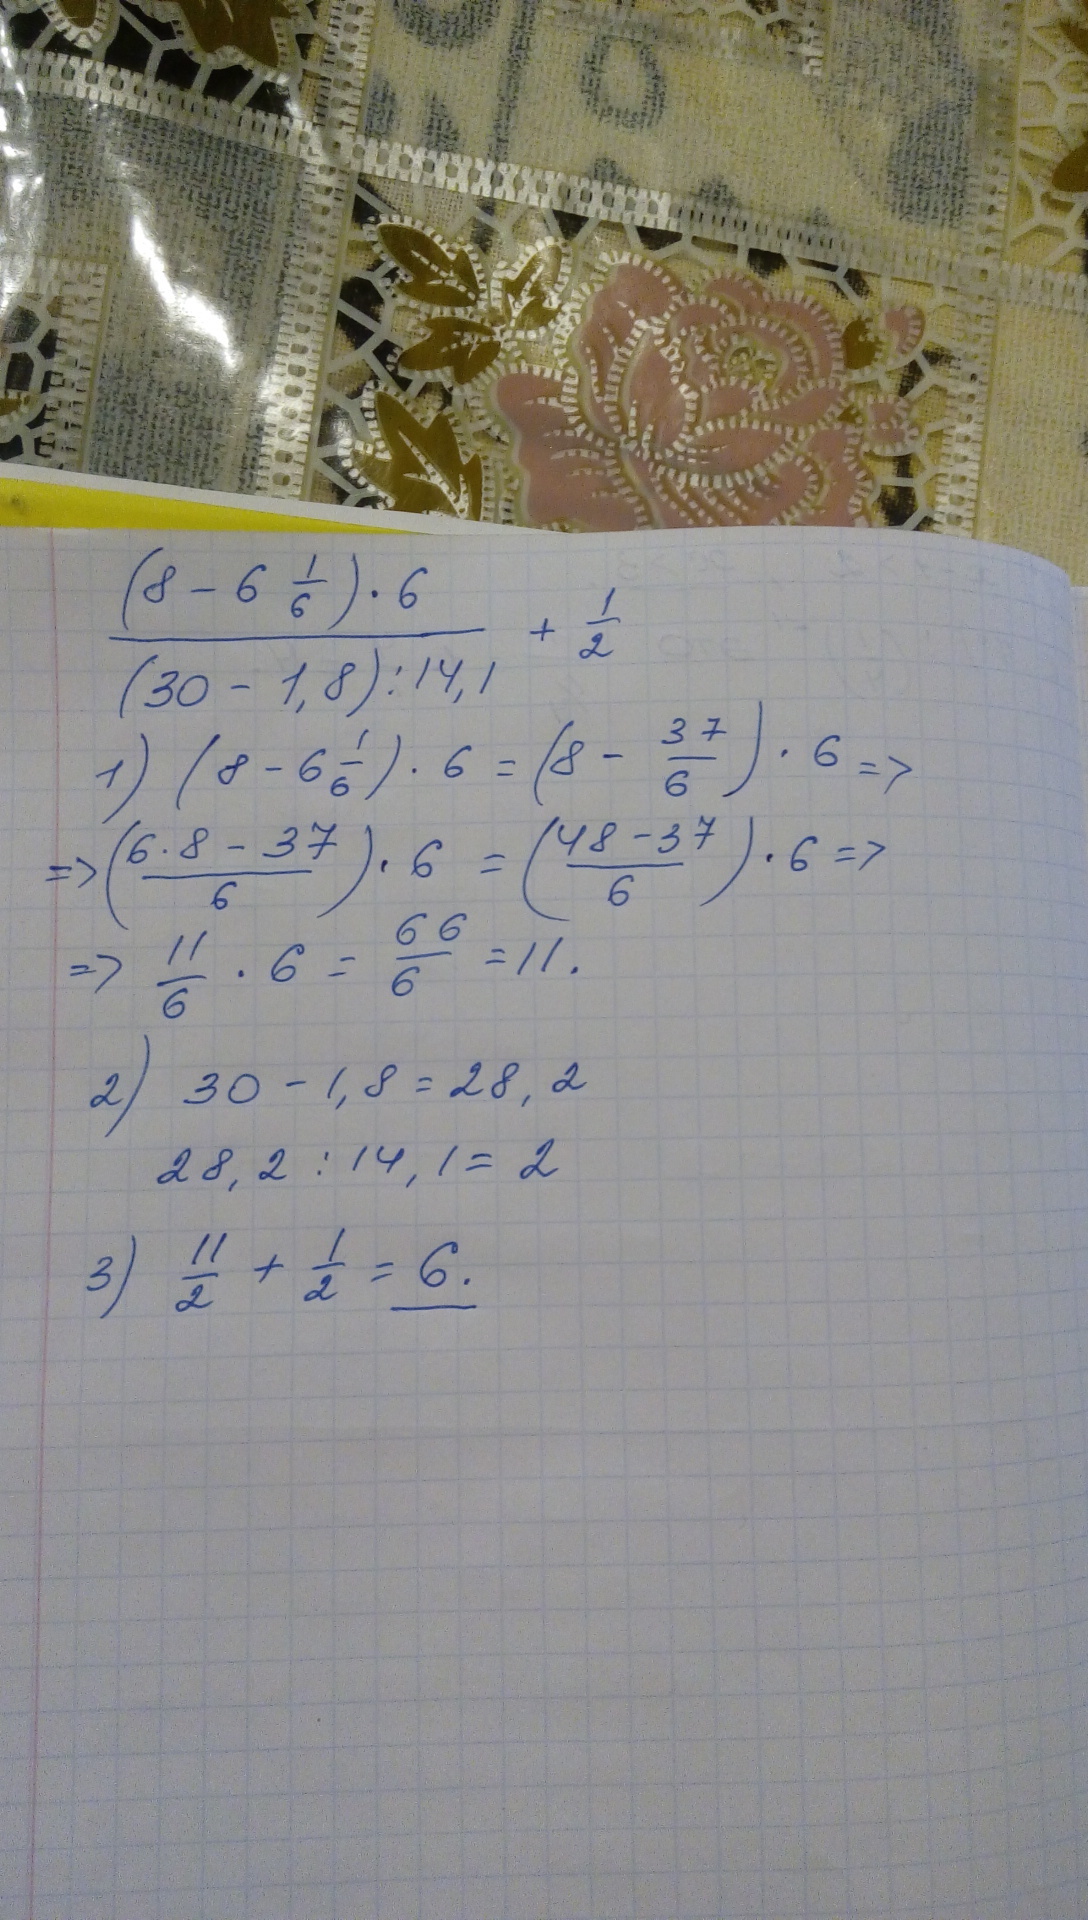 (8 - 6 1/6) · 6
(30 - 1,8) : 14,1
+ 1/2
1) (8 - 6 1/6) · 6 = (8 - 37/6) · 6 =>
=> ((6·8 - 37)/6) · 6 = ((48 - 37)/6) · 6 =>
=> 11/6 · 6 = 66/6 = 11.
2) 30 - 1,8 = 28,2
28,2 : 14,1 = 2
3) 11/2 + 1/2 = 6.